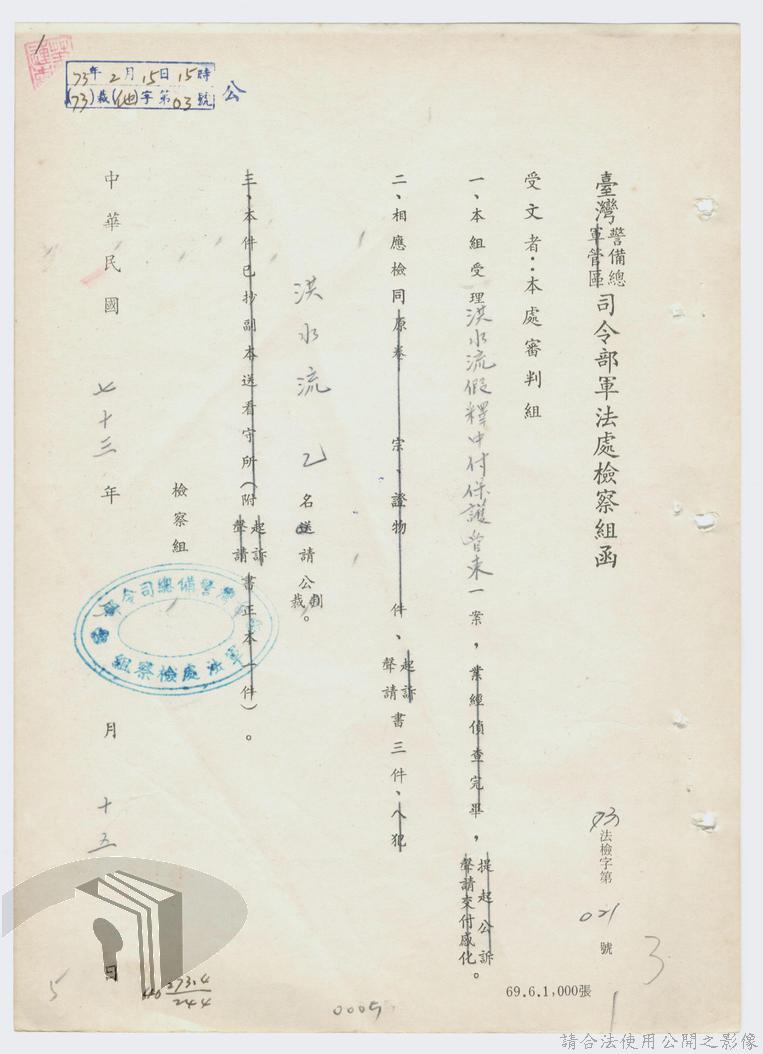 臺灣警備總軍管區司令部軍法處檢察組函
73法檢字第021號
受文者：本處審判組
一、本組受理洪水流假釋中付保護管束一案，業經偵查完畢，提起公訴聲請交付感化。
二、相應檢同原卷 宗、證物 件、起訴聲請書三件、人犯
洪水流乙名送請公判裁。
三、本件已抄副本送看守所（附起訴聲請書正本一件）。
檢察組
中華民國七十三年 月十五日
73年2月15日15時
(73)裁(他)字第03號
公
警備總司令
軍法處檢察組
69.6.1,000張
3
273.4
244
5
0005
請合法使用公開之影像